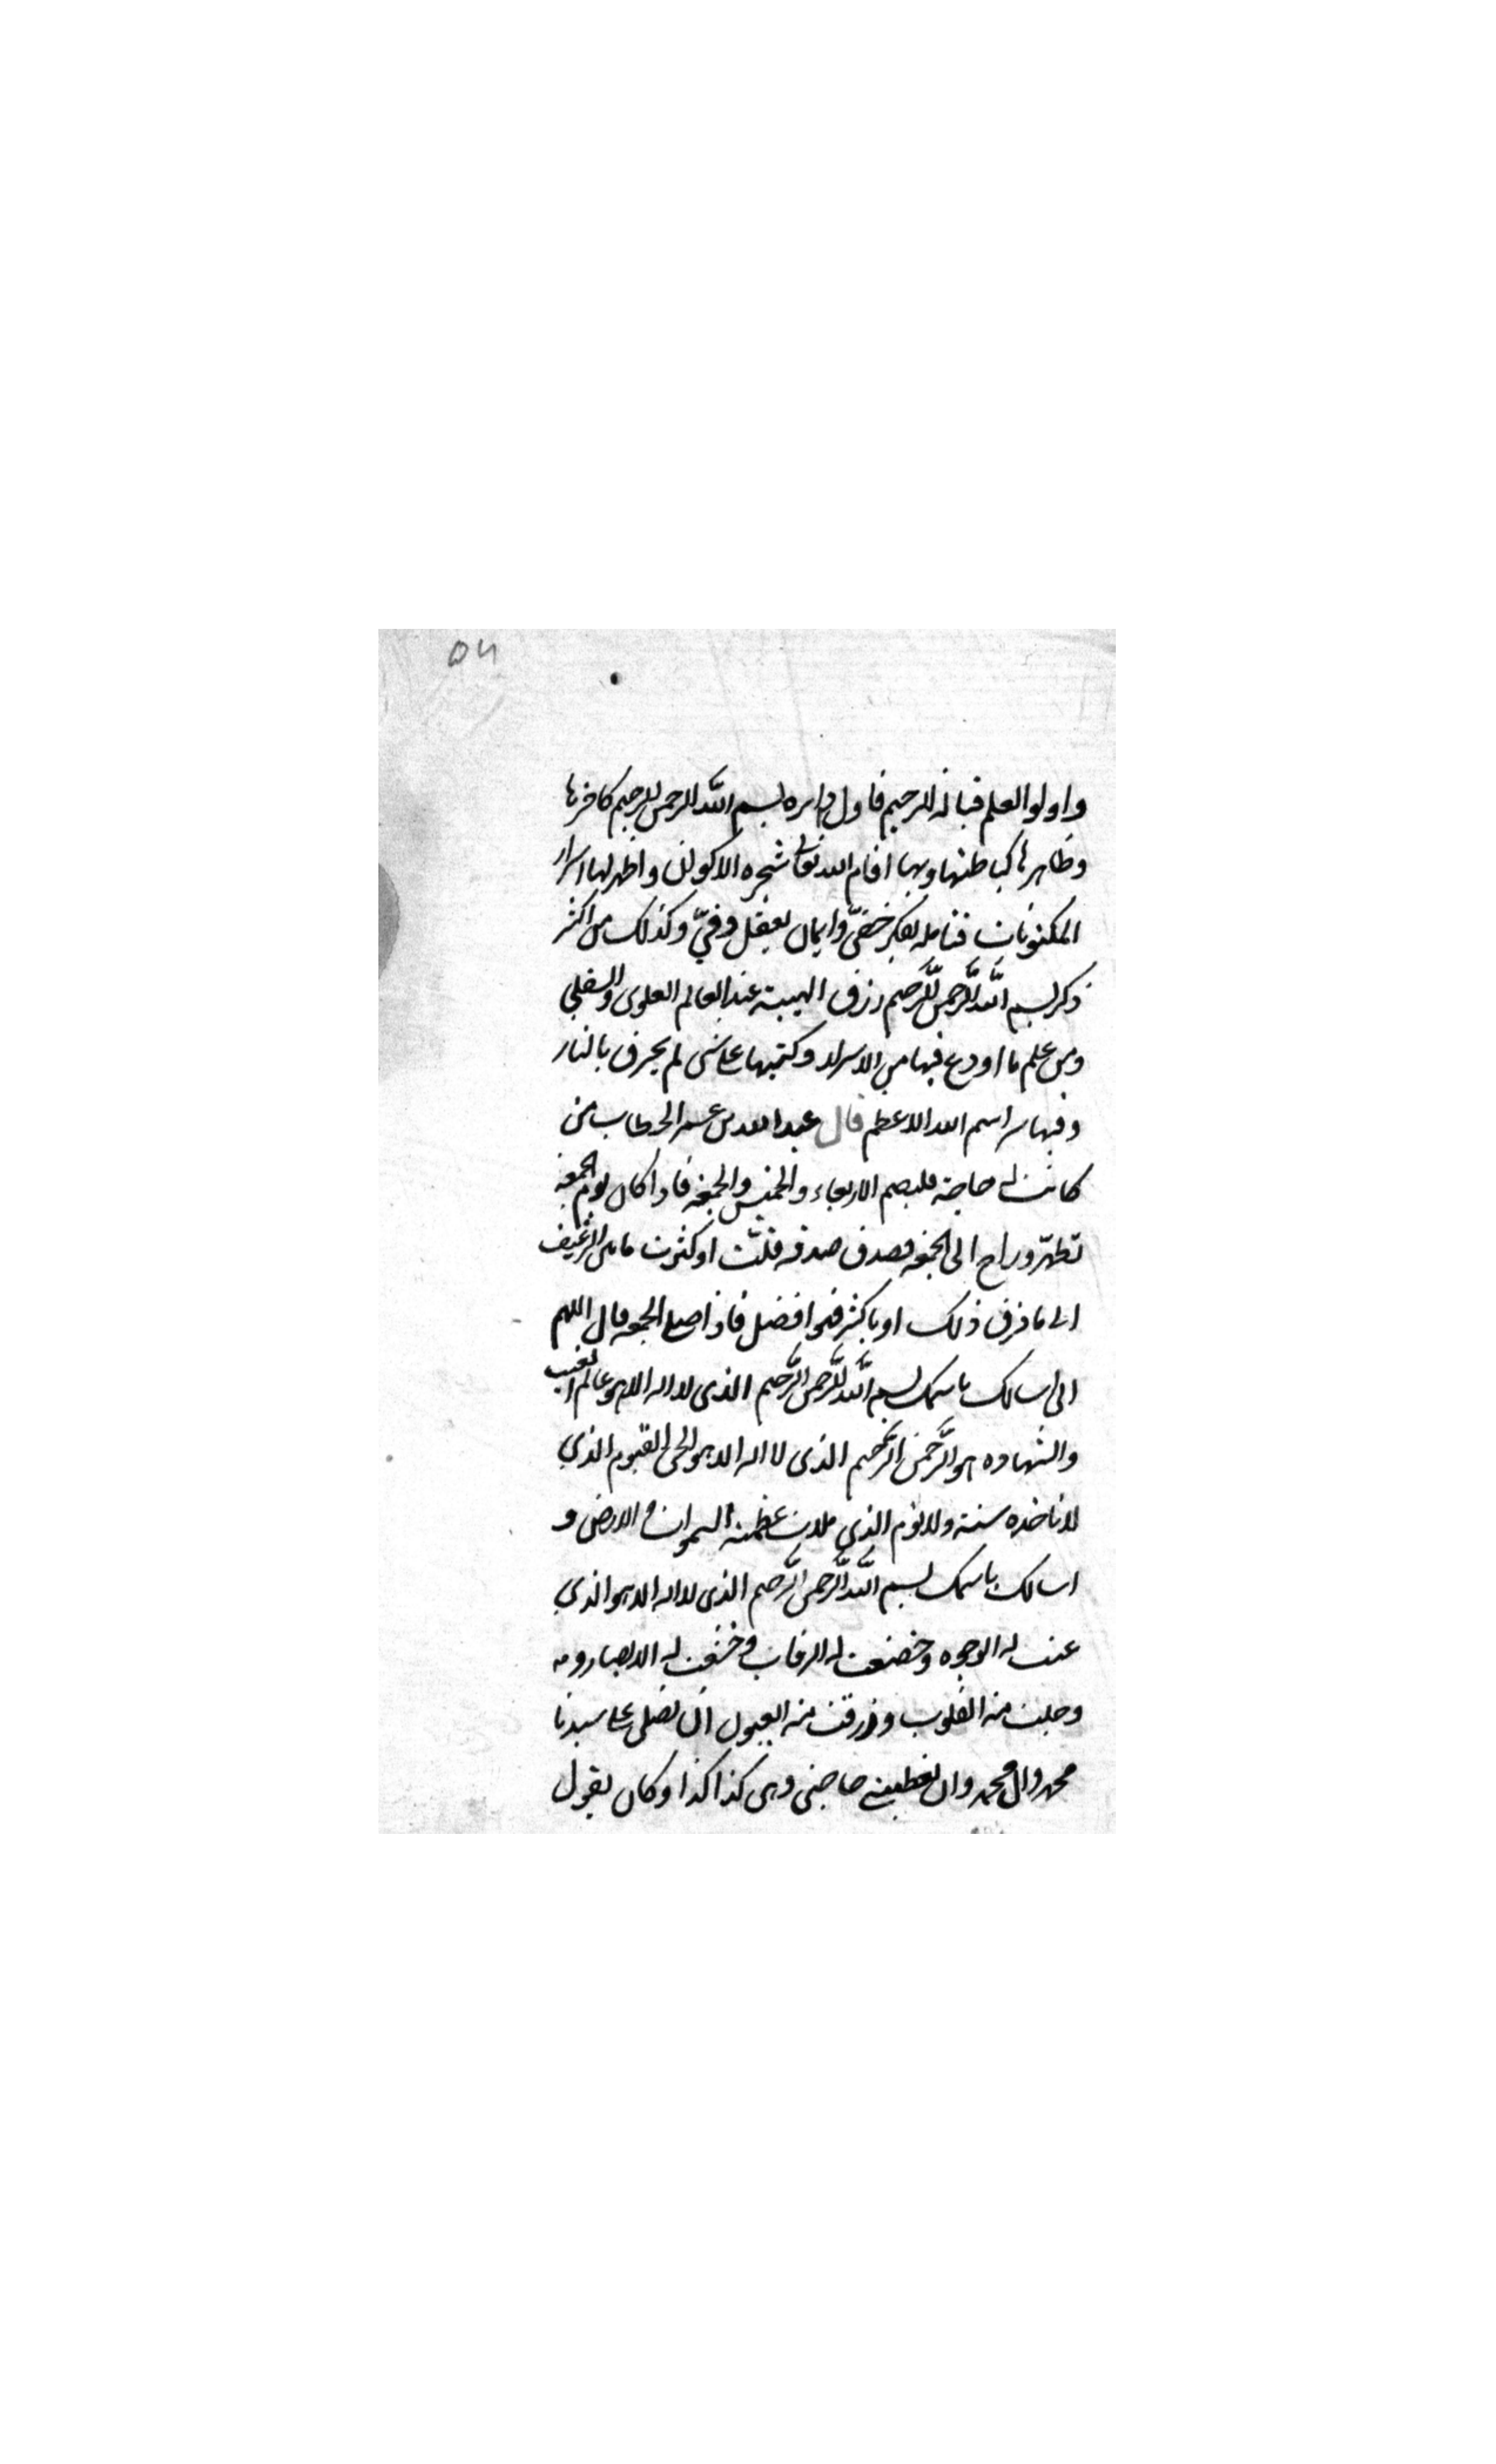 ٥٦
واولوا العلم قبانه الرحيم فاول دايره بسم الله الرحمن الرحيم كاخرها
وظاهرها كباطنها وبها اقام الله تعالى شجره الاكوان واظهر لها اسرار
المكنونات فتامله بفكر خفيّ وايمان بعقل وفيّ وكذلك من اكثر
ذكر بسم الله الرحمن الرحيم رزق الهيبة عند العالم العلوى والسفلي
ومن علم ما اودع فيها من الاسرار وكتبها على شى لم يحرق بالنار
وفيها سر اسم الله الاعظم قال عبد الله بن عمر الخطاب من
كانت له حاجة فليصم الاربعاء والخميس والجمعة فاذا كان يوم الجمعة
تطهّر وراح الى الجمعه فصدق صدقه قلّت او كثرت مابين الرغيف
الى مافوق ذلك او باكثر فهو افضل فاذا صلى الجمعه قال اللهم
انى اسالك باسمك بسم الله الرحمن الرحيم الذى لا اله الا هو عالم الغيب
والشهاده هو الرحمن الرحيم الذى لا اله الا هو الحى القيوم الذي
لا تاخذه سنة ولا نوم الذي ملات عظمته السموات والارض و
اسالك باسمك بسم الله الرحمن الرحيم الذى لا اله الا هو الذي
عنت له الوجوه وخضعت له الرقاب وخشعت له الابصار و
وجلت منه القلوب وذرفت منه العيون ان تصلى على سيدنا
محمد وال محمد وان تعطينى حاجتى وهى كذا كذا وكان يقول